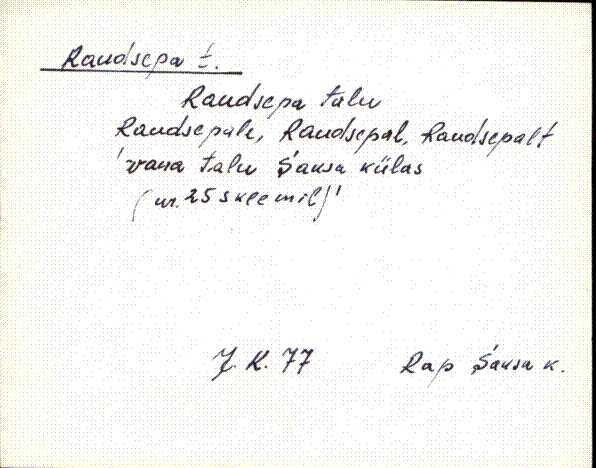 Raudsepa t.
Raudsepa talu
Raudsepale, Raudsepal, Raudsepalt
'vana talu Saksa külas
(nr. 25 skeemil)'
J. K. 77 Rap Saksa k.